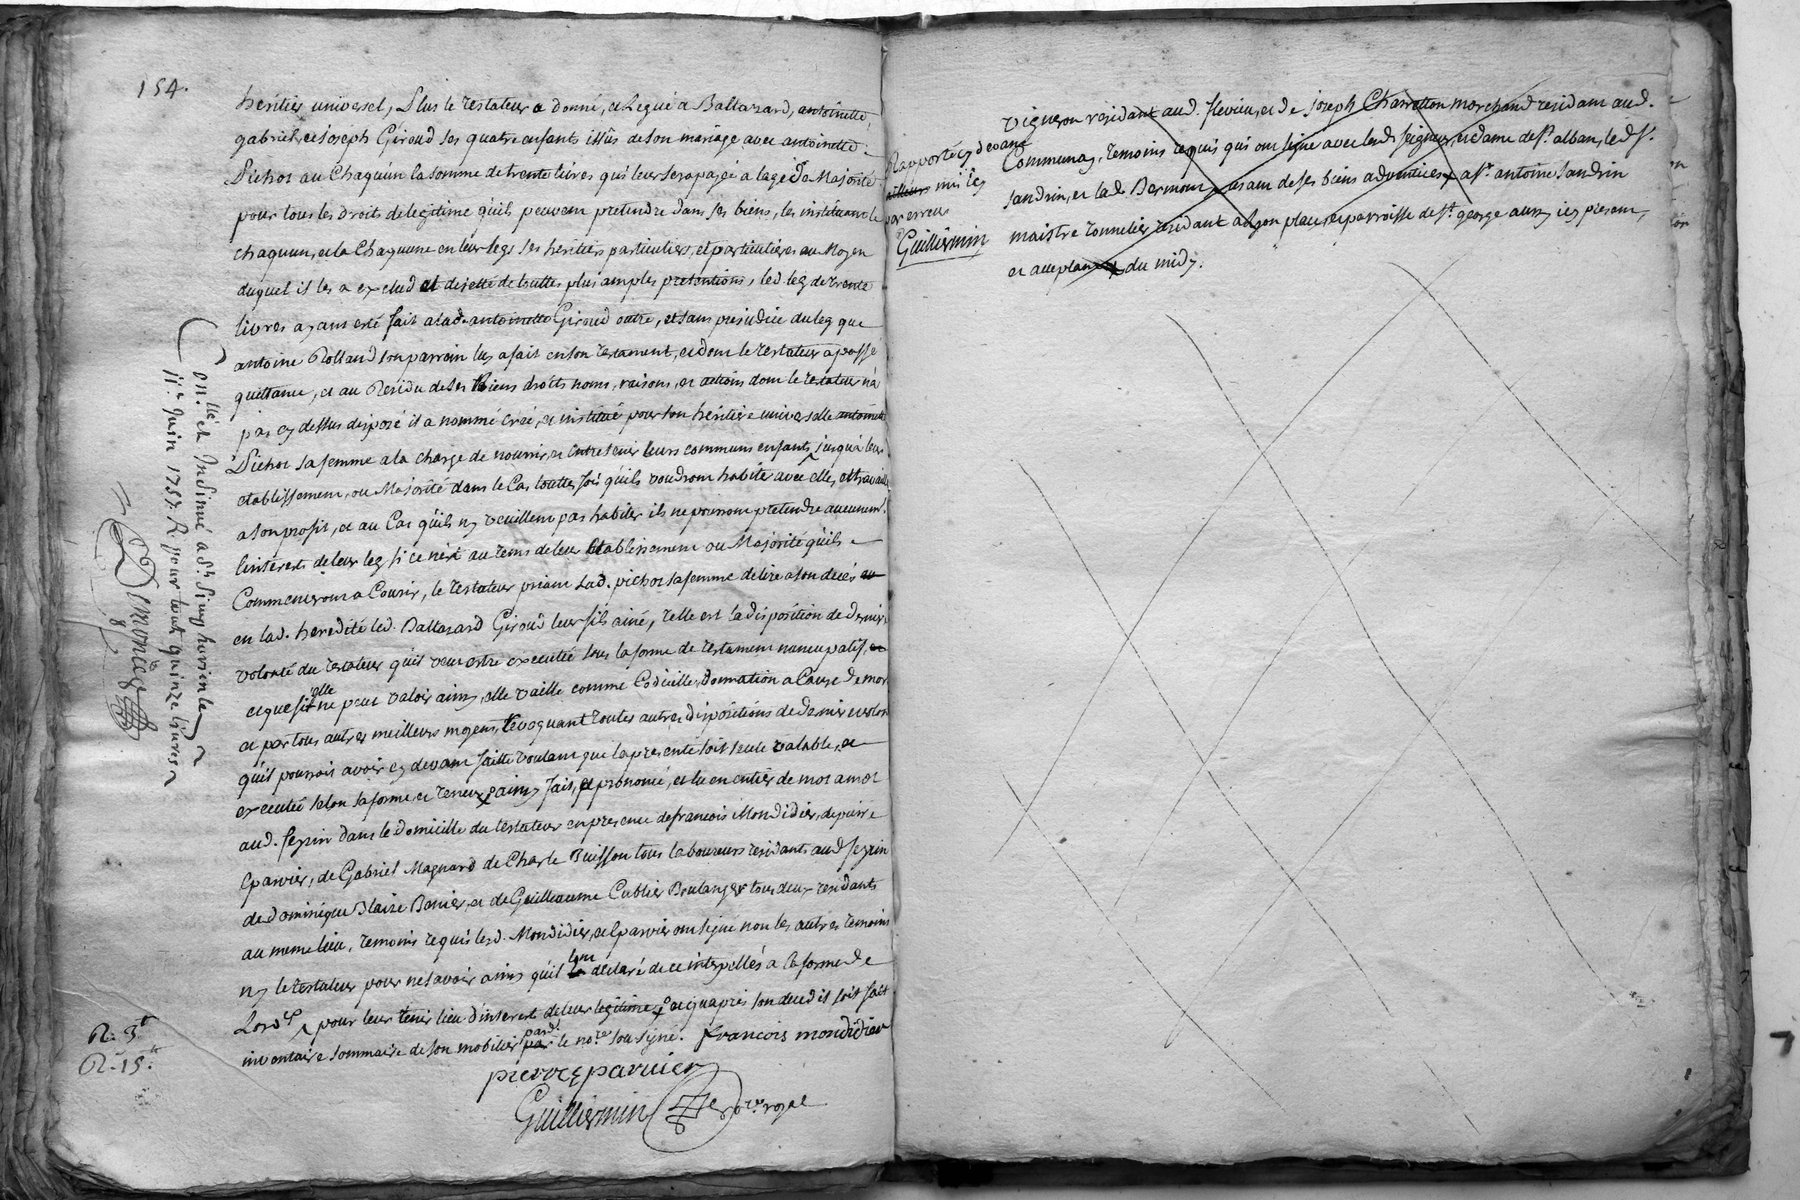 154.
heritier universel, Plus le testateur a donné, et Legué a Baltazard, antoinette,
gabriel, et joseph Giroud ses quatre enfants issus de son mariage avec antoinette
Pichot au Chaqu'un la somme de trente livres qui leur sera payée a lage de Majorité
pour tous les droits de legitime qu'ils peuvent pretendre dans ses biens, les instituant le
chaquun, et la Chaquune en leur legs ses heritiers particuliers, et particulieres au Moyen
duquel il les a exclud et dejetté de touttes plus amples pretentions, led. leg de trente
livres ayant esté fait a lad. antoinette Giroud outre, et sans prejudice du leg que
antoine Rolland son parrein luy a fait en son testament, et dont le testateur a passé
quittance, et au Residu de ses Biens droits noms, raisons, et actions dont le testateur n'a
pas cy dessus disposé il a nommé creé, et institué pour son heritiere universelle antoinette
Pichot sa femme a la charge de nourrir, et entretenir leurs communs enfants jusqu'a leur
etablissement, ou Majorité dans le Cas touttes fois qu'ils voudront habiter avec elle, et travailler
a son profit, et au Cas qu'ils ny veuillent pas habiter ils ne pourront pretendre aucunemt.
linterest de leur leg si ce n'est au tems de leur Etablissement ou Majorité qu'ils
Commenceront a Courir, le testateur priant Lad. pichot sa femme delire a son decés
en lad. heredité led. Baltazard Giroud leur fils ainé, telle est la disposition de derniere
volonté du testateur qu'il veut estre executée sous la forme de testament nuncupatif, et
et que si elle ne peut valoir ainsy elle vaille comme Codicille, Donnation a Cause de mort
et par tous autres meilleurs moyens, Revoquant toutes autres dispositions de derniere volonté
qu'il pourroit avoir cy devant faitte voulant que la presente soit seule valable, et
executée selon sa forme, et teneur, ainsy fait, et prononcé, et lu en entier de mot a mot
aud. seyrin dans le domicille du testateur en presence de francois Mondidier, de pierre
Eparvier, de Gabriel Magnard de Charle Buisson tous laboureurs residants aud. seyrin
de dominique Blaize Banier, et de Guilleaume Cublier Boulanger tous deux residants
au meme lieu, temoins requis lesd. Mondidier, et Eparvier ont signé non les autres temoins
ny le testateur pour ne sçavoir ainsy qu'ils l'ont declaré de ce interpellés a la forme de
Lord.ce pour leur tenir lieu d'interest de leur legitime, et qu'aprés son deced il soit fait
inventaire sommaire de son mobilier par dt. le no.re sousigné. francois mondidier
pierre eparvier
Guillermin no.re royal
Con.llé et Insinué a St. Simphorien le
11.e juin 1757. R pour tout quinze livres
Demonier
R. 3.lt
R. 15.lt
Rapporté cy devant
ailleurs mis icy
par erreur
Guillermin
vigneron residant aud. flevieu, et de joseph Charretton marchand residant aud.
Communay, temoins requis qui ont signé avec lesd. seigneur, et dame de St. alban, led. Sr.
Sandrin, et lad. Bermont, et sans de ses biens adventices a Sr. antoine Sandrin
maistre tonnelier residant a Lyon place, et parroisse de St. george aussy icy present,
et acceptant du midy.